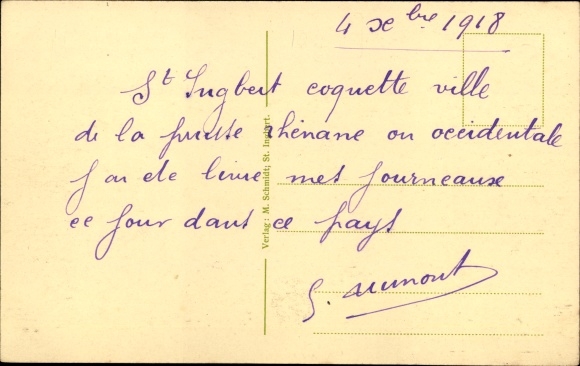 4 xbre 1918
St Ingbert coquette ville
de la prusse rhénane ou occidentale
J ai ete livrè mes fourneaux
ce jour dans ce pays
G. Aumont
Verlag: M. Schmidt; St. Ingbert.